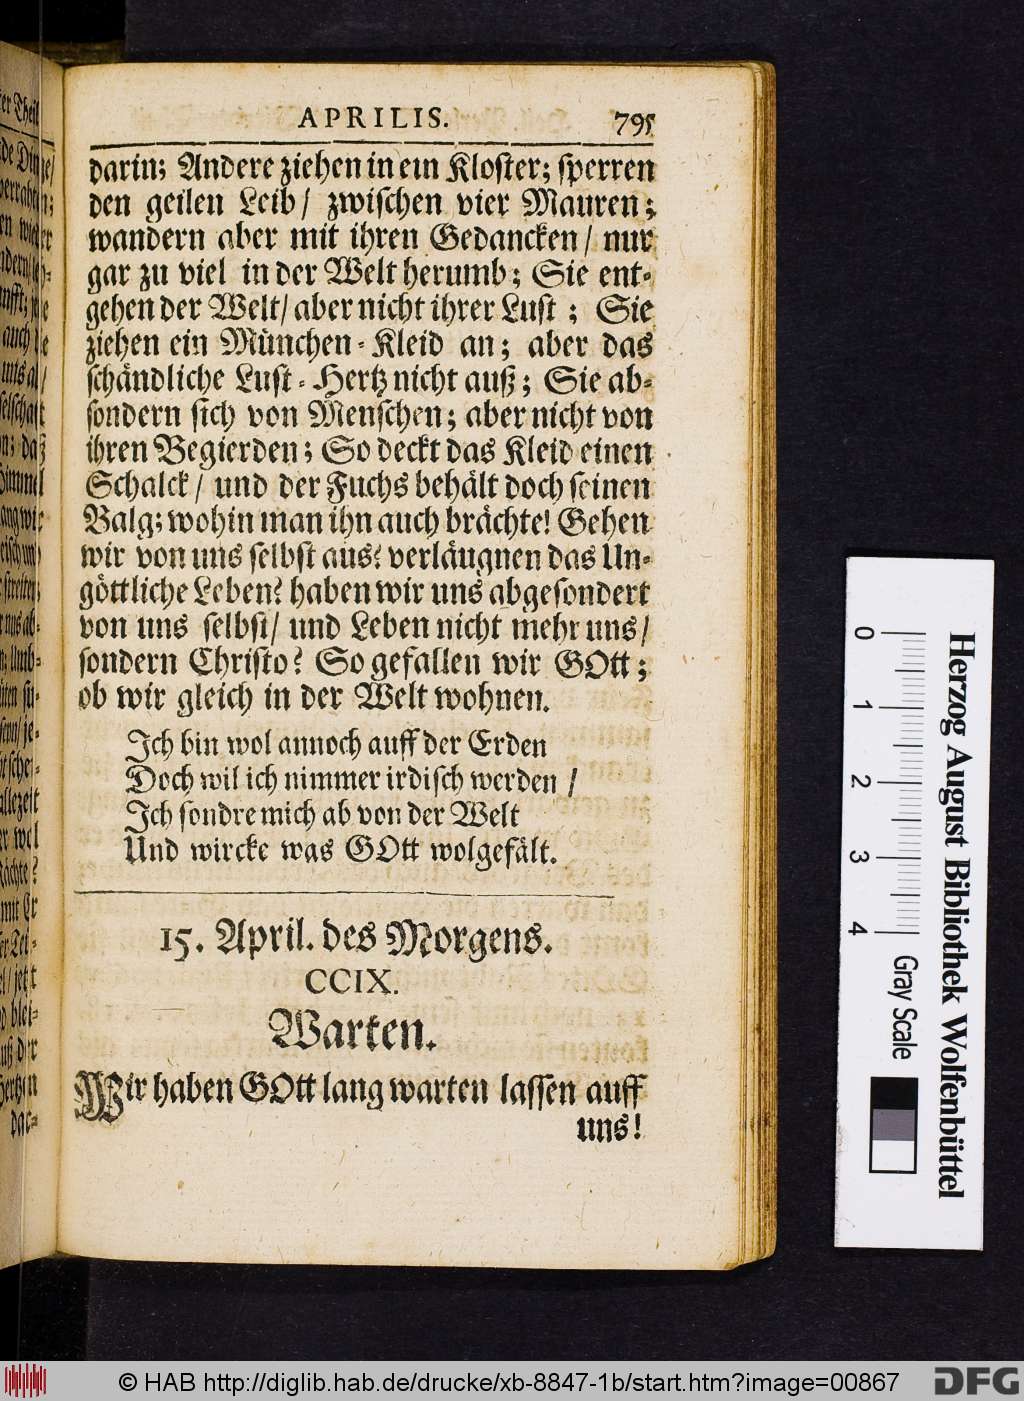 APRILIS. 795
darin; Andere ziehen in ein Kloster; sperren
den geilen Leib/ zwischen vier Mauren;
wandern aber mit ihren Gedancken/ nur
gar zu viel in der Welt herumb; Sie ent-
gehen der Welt/ aber nicht ihrer Lust; Sie
ziehen ein München-Kleid an; aber das
schändliche Lust-Hertz nicht auß; Sie ab-
sondern sich von Menschen; aber nicht von
ihren Begierden; So deckt das Kleid einen
Schalck/ und der Fuchs behält doch seinen
Balg; wohin man ihn auch brächte! Gehen
wir von uns selbst aus? verläugnen das Un-
göttliche Leben? haben wir uns abgesondert
von uns selbst/ und Leben nicht mehr uns/
sondern Christo? So gefallen wir GOtt;
ob wir gleich in der Welt wohnen.
Ich bin wol annoch auff der Erden
Doch wil ich nimmer irdisch werden/
Ich sondre mich ab von der Welt
Und wircke was GOtt wolgefält.
15. April. des Morgens.
CCIX.
Warten.
Wir haben GOtt lang warten lassen auff
uns!
0 1 2 3 4 Gray Scale
Herzog August Bibliothek Wolfenbüttel
© HAB http://diglib.hab.de/drucke/xb-8847-1b/start.htm?image=00867
DFG